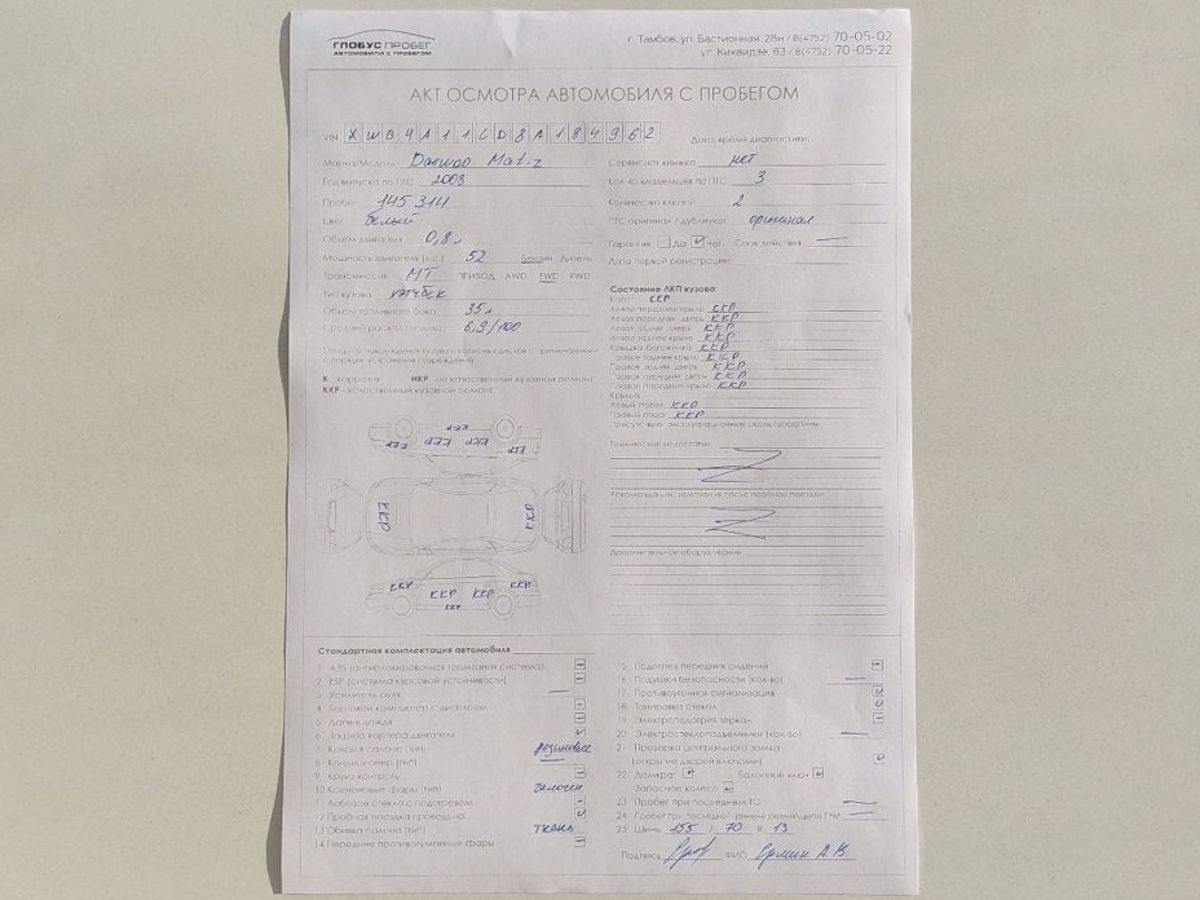 ГЛОБУС ПРОБЕГ
АВТОМОБИЛИ С ПРОБЕГОМ
г. Тамбов, ул. Бастионная, 28н / 8(4752) 70-05-02
ул. Киквидзе, 83 / 8(4752) 70-05-22
АКТ ОСМОТРА АВТОМОБИЛЯ С ПРОБЕГОМ
VIN XWB4A11CD8A184962
Дата, время диагностики:
Марка/Модель Daewoo Matiz
Год выпуска по ПТС 2008
Пробег 145 314
Цвет белый
Объем двигателя 0,8 л
Мощность двигателя (л.с.) 52 Бензин Дизель
Трансмиссия МТ ПРИВОД AWD FWD RWD
Тип кузова хэтчбек
Объем топливного бака 35 л
Средний расход топлива 6,9/100
Сервисная книжка нет
Кол-во владельцев по ПТС 3
Количество ключей 2
ПТС оригинал / дубликат оригинал
Гарантия Да Нет. Срок действия —
Дата первой регистрации
К - коррозия НКР - не качественный кузовной ремонт
ККР - качественный кузовной ремонт
ККР ККР ККР ККР ККР ККР
ККР ККР
ККР ККР ККР ККР
ККР
Состояние ЛКП кузова
Капот ККР
Левое переднее крыло ККР
Левая передняя дверь ККР
Левая задняя дверь ККР
Левое заднее крыло ККР
Крышка багажника ККР
Правое заднее крыло ККР
Правая задняя дверь ККР
Правая передняя дверь ККР
Правое переднее крыло ККР
Крыша
Левый порог ККР
Правый порог ККР
Присутствуют эксплуатационные сколы, царапины
Технические недостатки
Рекомендации, замечания после пробной поездки
Дополнительное оборудование
Стандартная комплектация автомобиля
1 ABS (антиблокировочная тормозная система) —
2 ESP (система курсовой устойчивости) —
3 Усилитель руля —
4 Бортовой компьютер с дисплеем —
5 Датчик дождя —
6 Защита картера двигателя
7 Ковры в салоне (тип) резиновые
8 Кондиционер (тип) —
9 Круиз контроль —
10 Ксеноновые фары (тип) галоген
11 Лобовое стекло с подогревом —
12 Пробная поездка проведена
13 Обивка салона (тип) ткань
14 Передние противотуманные фары —
15 Подогрев передних сидений
16 Подушки безопасности (кол-во) —
17 Противоугонная сигнализация
18 Тонировка стекол
19 Электроподогрев зеркал
20 Электростеклоподъемники (кол-во) —
21 Проверка центрального замка
(открытие дверей ключами)
22 Домкрат Балонный ключ
Запасное колесо
23 Пробег при последнем ТО —
24 Пробег при последней замене ремня/цепи ГРМ —
25 Шины 155 / 70 R 13
Подпись ФИО Ермин А.В.